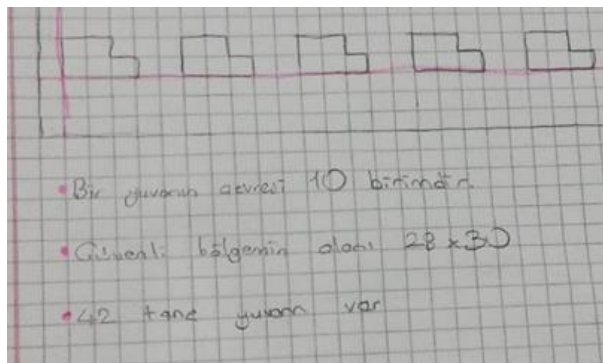 • Bir yuvanın çevresi 10 birimdir.
• Güvenli bölgenin alanı 28 x 30
• 42 tane yuvam var